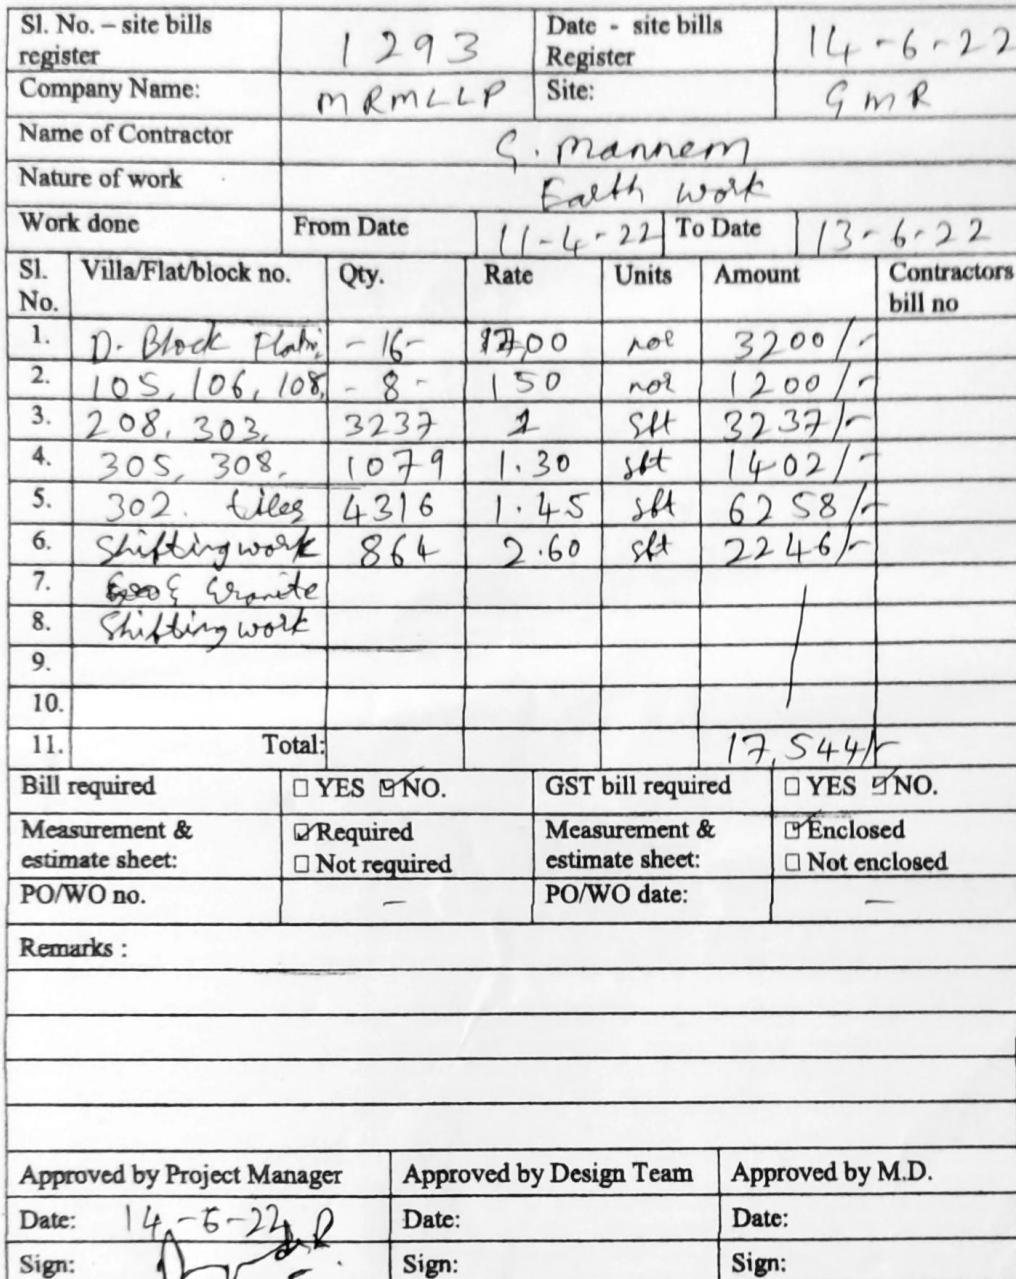 Sl. No. – site bills register 1293 Date - site bills Register 14-6-22
Company Name: MRMLLP Site: GMR
Name of Contractor G. Mannem
Nature of work Earth work
Work done From Date 11-4-22 To Date 13-6-22
Sl. No. Villa/Flat/block no. Qty. Rate Units Amount Contractors bill no
1. D. Block -16- 00 3200/-
2. 105, 106, 108, -8- 150 1200/-
3. 208, 303, 3237 1 sft 3237/-
4. 305, 308, 1079 1.30 sft 1402/-
5. 302. tiles 4316 1.45 sft 6258/-
6. Shifting work 864 2.60 sft 2246/-
7. & Granite
8. Shifting work
9.
10.
11. Total: 17,544/-
Bill required ☐ YES ☑ NO. GST bill required ☐ YES ☑ NO.
Measurement & estimate sheet: ☑ Required ☐ Not required Measurement & estimate sheet: ☑ Enclosed ☐ Not enclosed
PO/WO no. — PO/WO date: —
Remarks :
Approved by Project Manager Approved by Design Team Approved by M.D.
Date: 14-6-22 Date: Date:
Sign: Sign: Sign: